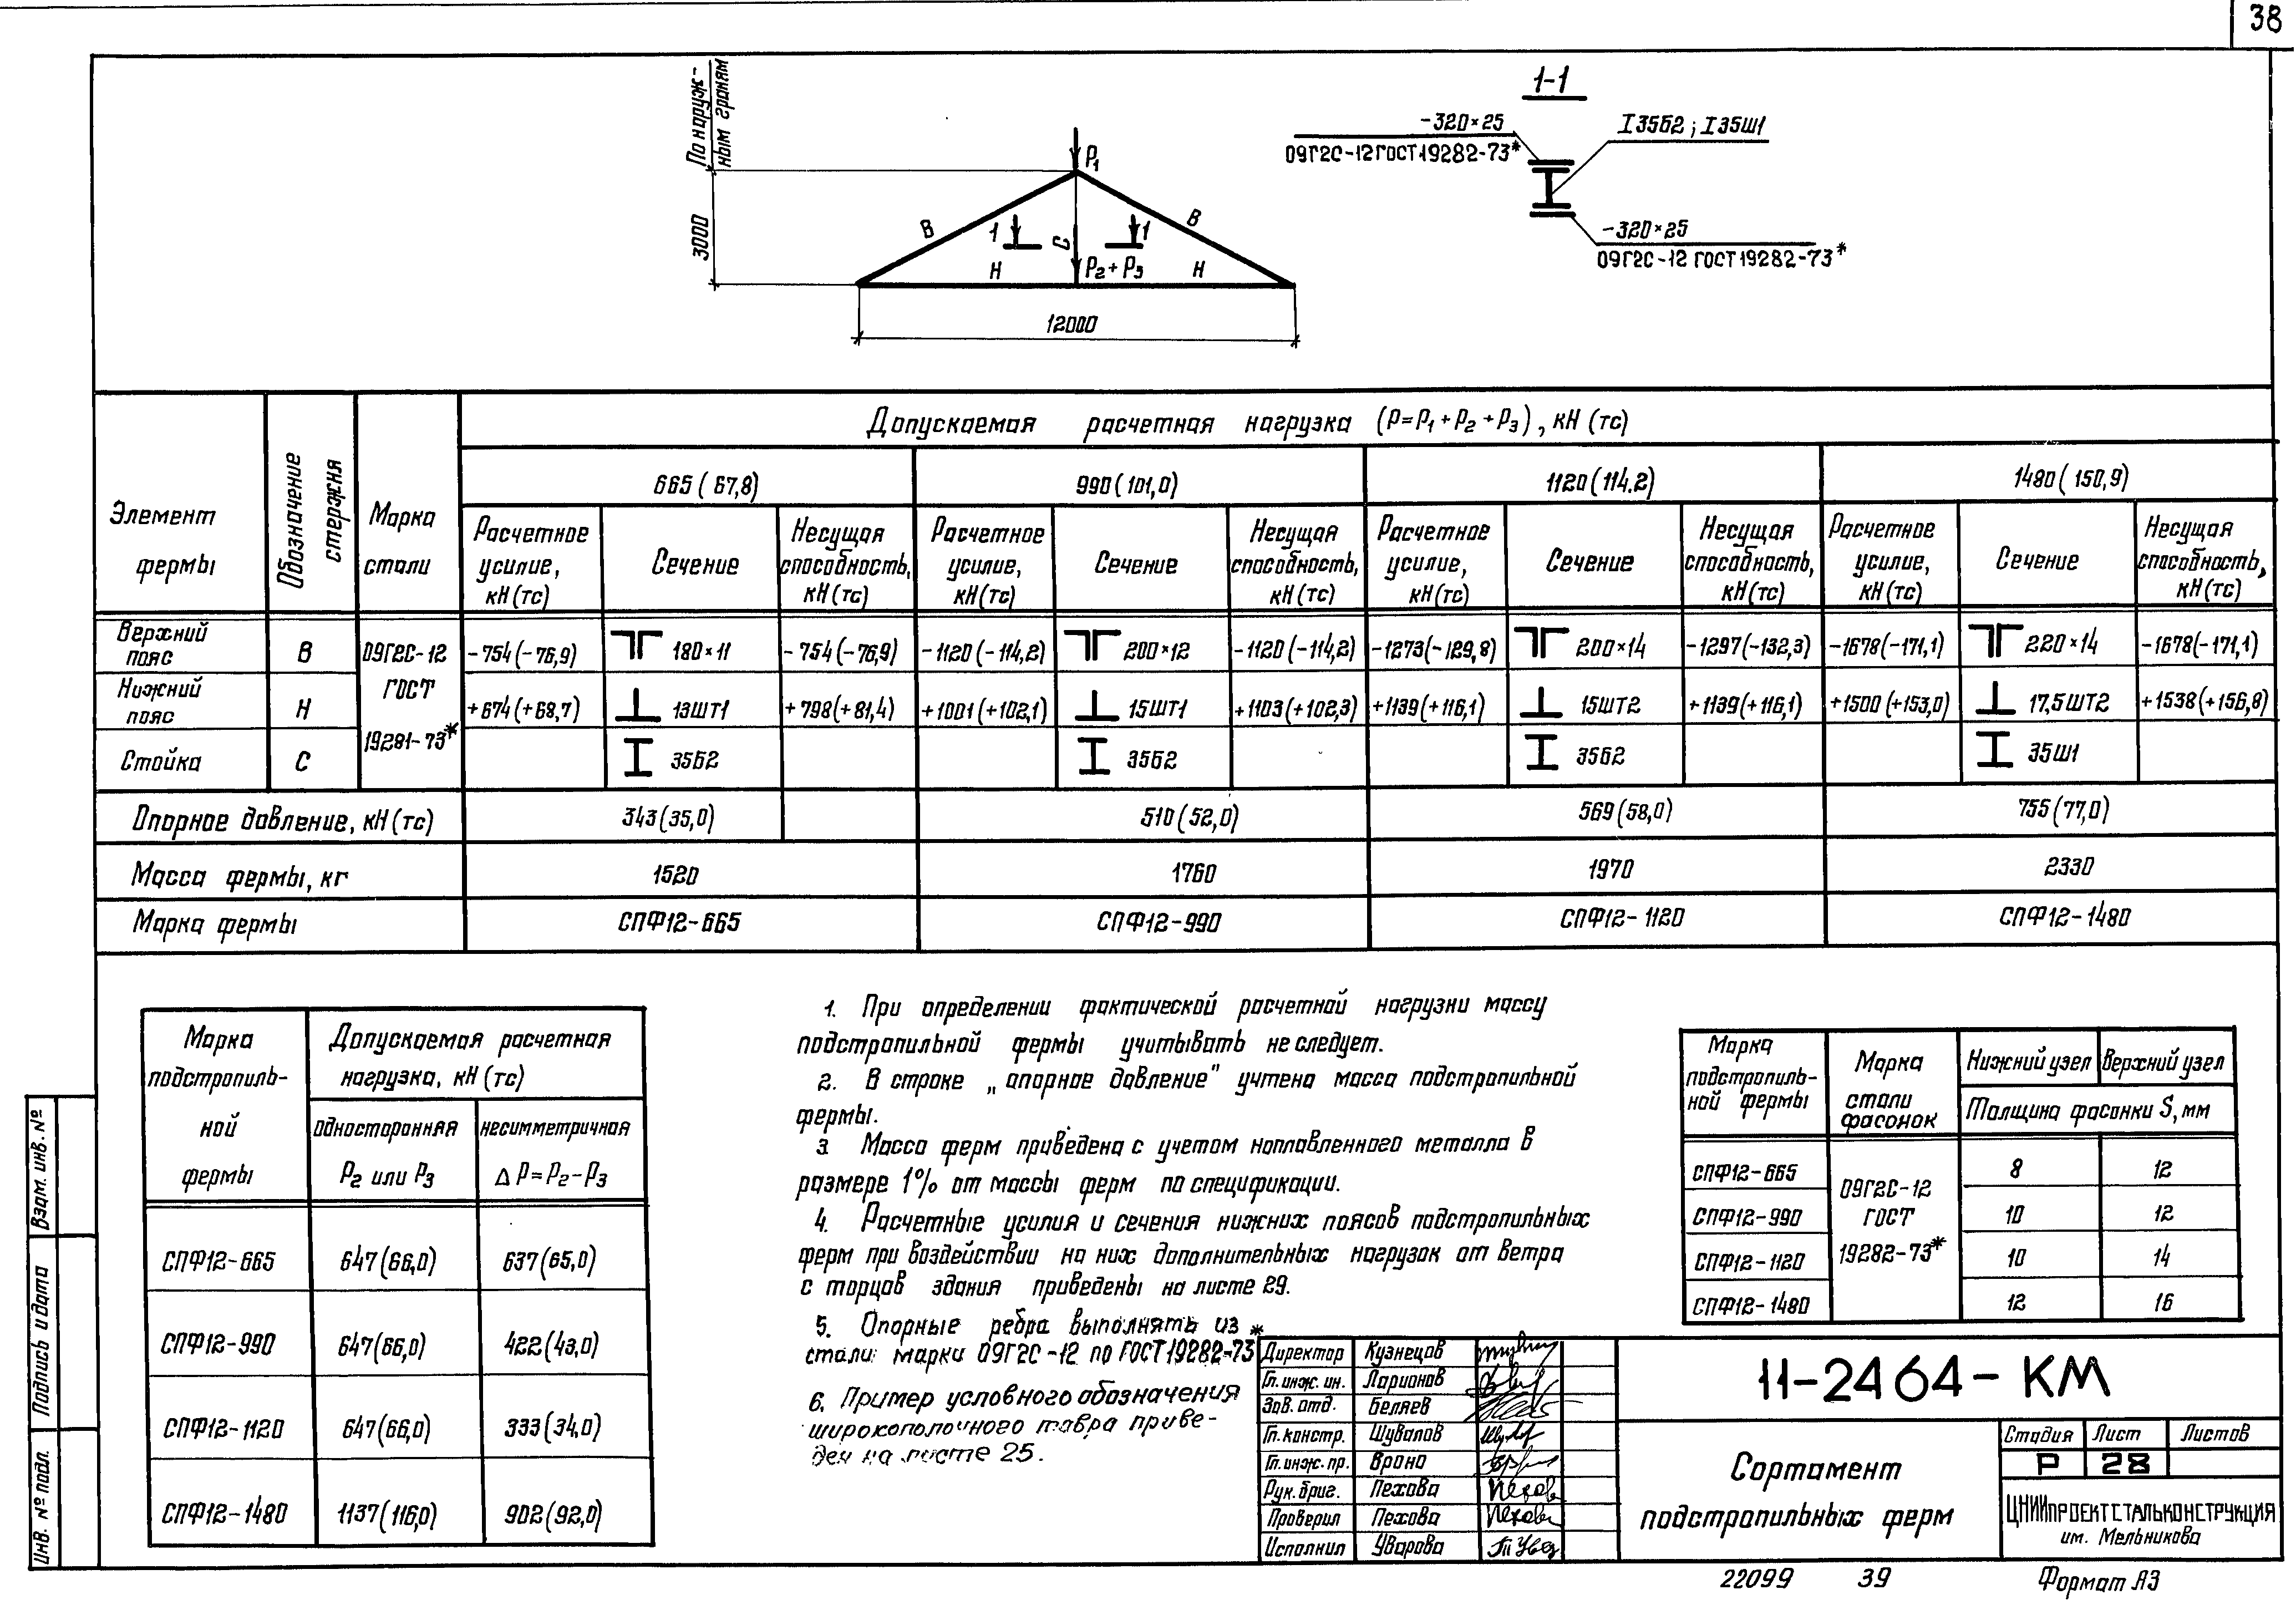 38
По наруж-
ным граням
3000
P₁
В
В
1
1
С
Н
P₂+P₃
Н
12000
1-1
-320×25
09Г2С-12 ГОСТ 19282-73*
I35Б2; I35Ш1
-320×25
09Г2С-12 ГОСТ 19282-73*
Элемент фермы
Обозначение стержня
Марка стали
Допускаемая расчетная нагрузка (P=P₁+P₂+P₃), кН (тс)
665 (67,8)
990 (101,0)
1120 (114.2)
1480 (150,9)
Расчетное усилие, кН (тс)
Сечение
Несущая способность, кН (тс)
Расчетное усилие, кН (тс)
Сечение
Несущая способность, кН (тс)
Расчетное усилие, кН (тс)
Сечение
Несущая способность, кН (тс)
Расчетное усилие, кН (тс)
Сечение
Несущая способность, кН (тс)
Верхний пояс
В
09Г2С-12 ГОСТ 19281-73*
-754 (-76,9)
180×11
-754 (-76,9)
-1120 (-114,2)
200×12
-1120 (-114,2)
-1273 (-129,8)
200×14
-1297 (-132,3)
-1678 (-171,1)
220×14
-1678 (-171,1)
Нижний пояс
Н
+674 (+68,7)
13ШТ1
+798 (+81,4)
+1001 (+102,1)
15ШТ1
+1103 (+102,3)
+1139 (+116,1)
15ШТ2
+1139 (+116,1)
+1500 (+153,0)
17,5ШТ2
+1538 (+156,8)
Стойка
С
35Б2
35Б2
35Б2
35Ш1
Опорное давление, кН (тс)
343 (35,0)
510 (52,0)
569 (58,0)
755 (77,0)
Масса фермы, кг
1520
1760
1970
2330
Марка фермы
СПФ12-665
СПФ12-990
СПФ12-1120
СПФ12-1480
Марка подстропиль-
ной фермы
Допускаемая расчетная
нагрузка, кН (тс)
односторонняя
P₂ или P₃
несимметричная
Δ P=P₂-P₃
СПФ12-665
647 (66,0)
637 (65,0)
СПФ12-990
647 (66,0)
422 (43,0)
СПФ12-1120
647 (66,0)
333 (34,0)
СПФ12-1480
1137 (116,0)
902 (92,0)
1. При определении фактической расчетной нагрузки массу
подстропильной фермы учитывать не следует.
2. В строке „опорное давление" учтена масса подстропильной
фермы.
3. Масса ферм приведена с учетом наплавленного металла в
размере 1% от массы ферм по спецификации.
4. Расчетные усилия и сечения нижних поясов подстропильных
ферм при воздействии на них дополнительных нагрузок от ветра
с торцов здания приведены на листе 29.
5. Опорные ребра выполнять из
стали марки 09Г2С-12 по ГОСТ 19282-73*
6. Пример условного обозначения
широкополочного тавра приве-
ден на листе 25.
Марка
подстропиль-
ной фермы
Марка
стали
фасонок
Нижний узел
Верхний узел
Толщина фасонки S, мм
СПФ12-665
09Г2С-12
ГОСТ
19282-73*
8
12
СПФ12-990
10
12
СПФ12-1120
10
14
СПФ12-1480
12
16
Директор Кузнецов
Гл. инж. ин. Ларионов
Зав. отд. Беляев
Гл. констр. Шувалов
Гл. инж. пр. Врона
Рук. бриг. Пехова
Проверил Пехова
Исполнил Уварова
11-2464-КМ
Сортамент
подстропильных ферм
Стадия Лист Листов
Р 28
ЦНИИПРОЕКТСТАЛЬКОНСТРУКЦИЯ
им. Мельникова
22099 39
Формат А3
Взам. инв. №
Подпись и дата
Инв. № подл.